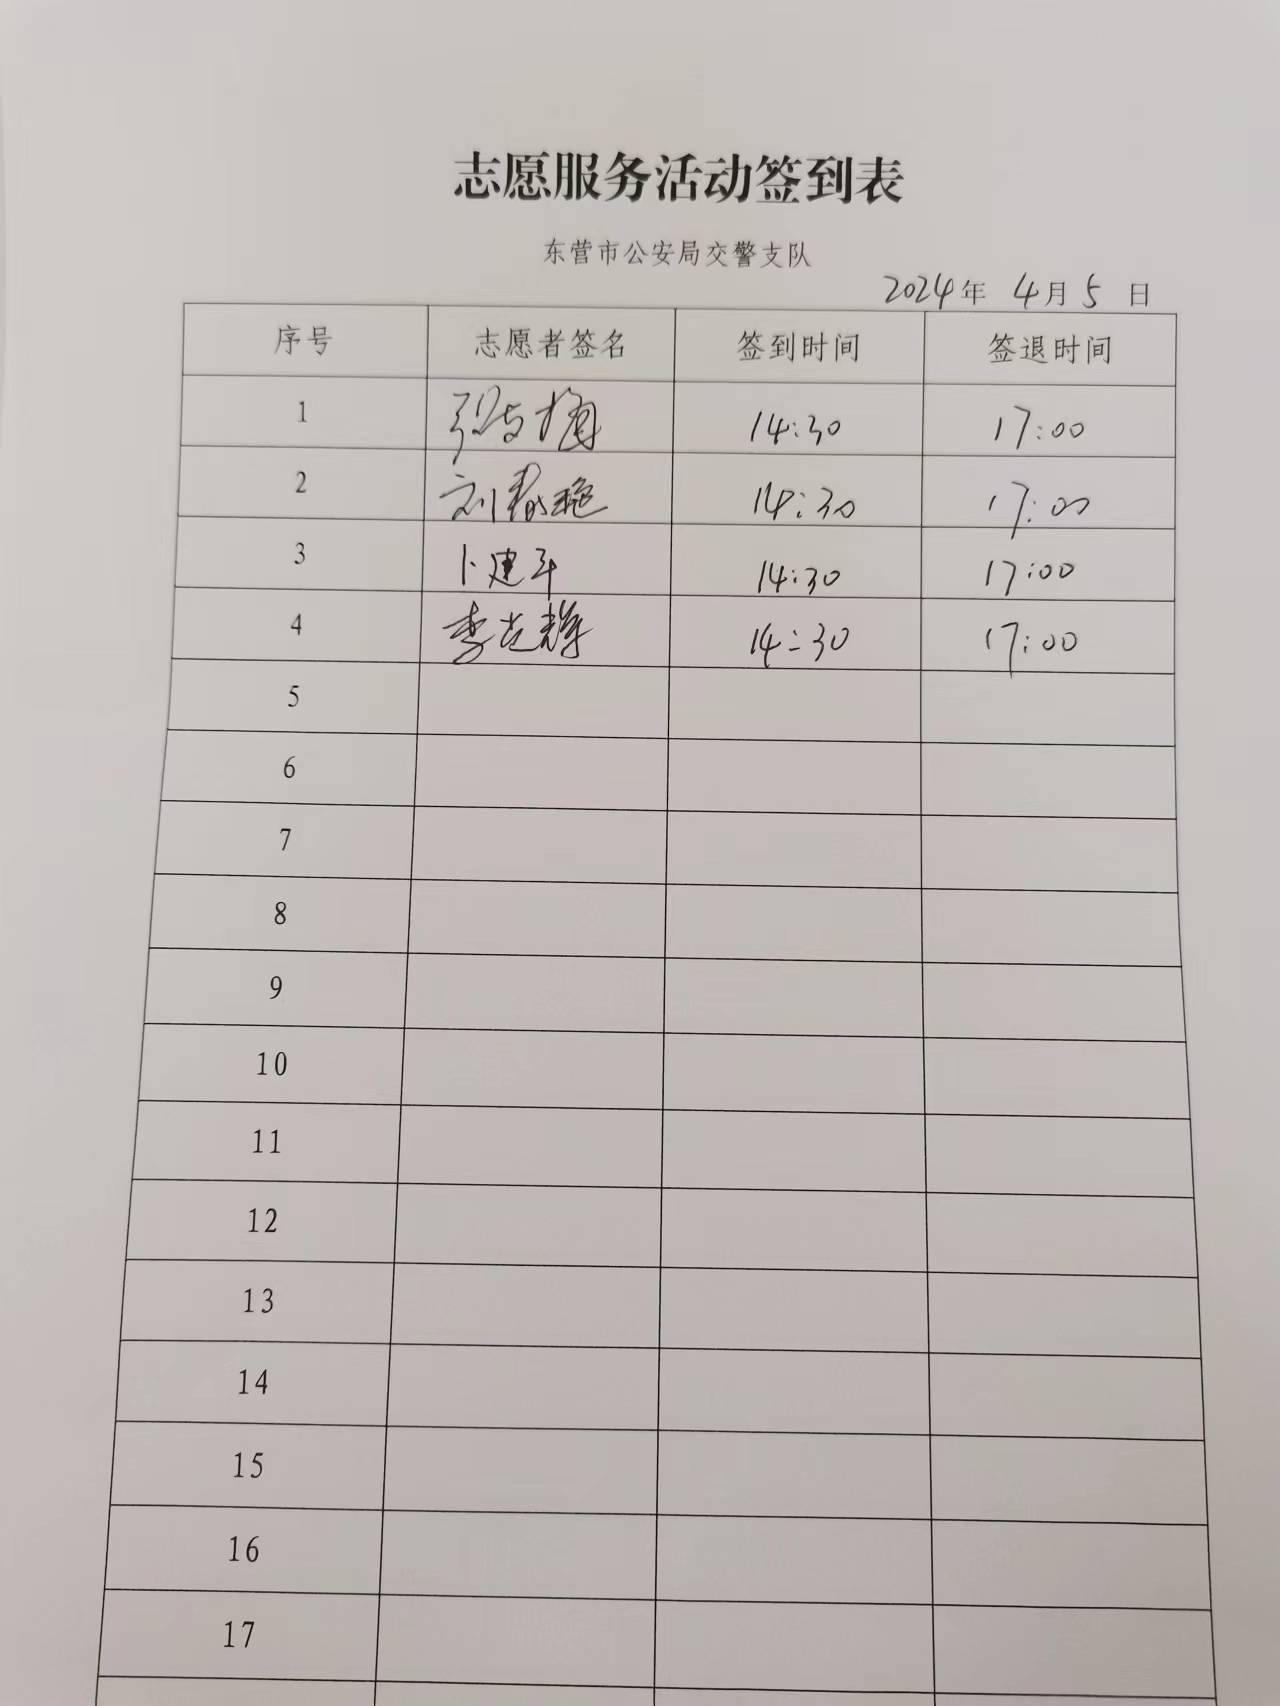 志愿服务活动签到表
东营市公安局交警支队
2024年 4月5日
序号 志愿者签名 签到时间 签退时间
1 14:30 17:00
2 刘春艳 14:30 17:00
3 卜建军 14:30 17:00
4 李 14:30 17:00
5
6
7
8
9
10
11
12
13
14
15
16
17